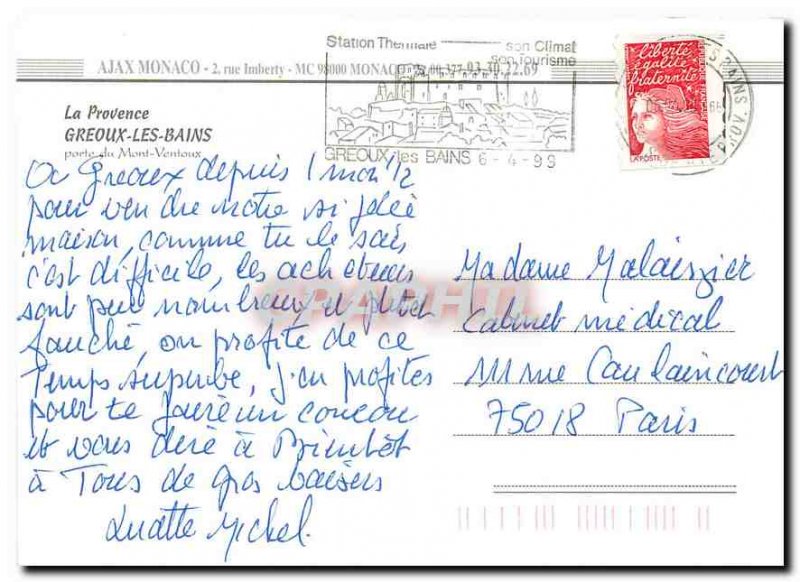 Station Thermale son Climat
son Tourisme
AJAX MONACO - 2, rue Imberty - MC 98000 MONACO
La Provence
GREOUX-LES-BAINS
porte du Mont-Ventoux
GREOUX les BAINS 6-4-99
liberté
égalité
fraternité
RÉPUBLIQUE FRANÇAISE
LA POSTE
A Greoux depuis 1 mois 1/2
pour vendre notre si jolie
maison, comme tu le sais
c'est difficile, les acheteurs
sont peu nombreux et plutôt
fauché, on profite de ce
Temps superbe, j'en profites
pour te faire un coucou
et vous dire à Bientôt
à Tous de gros baisers
Michel
Madame
Cabinet médical
111 rue Caulaincourt
75018 Paris